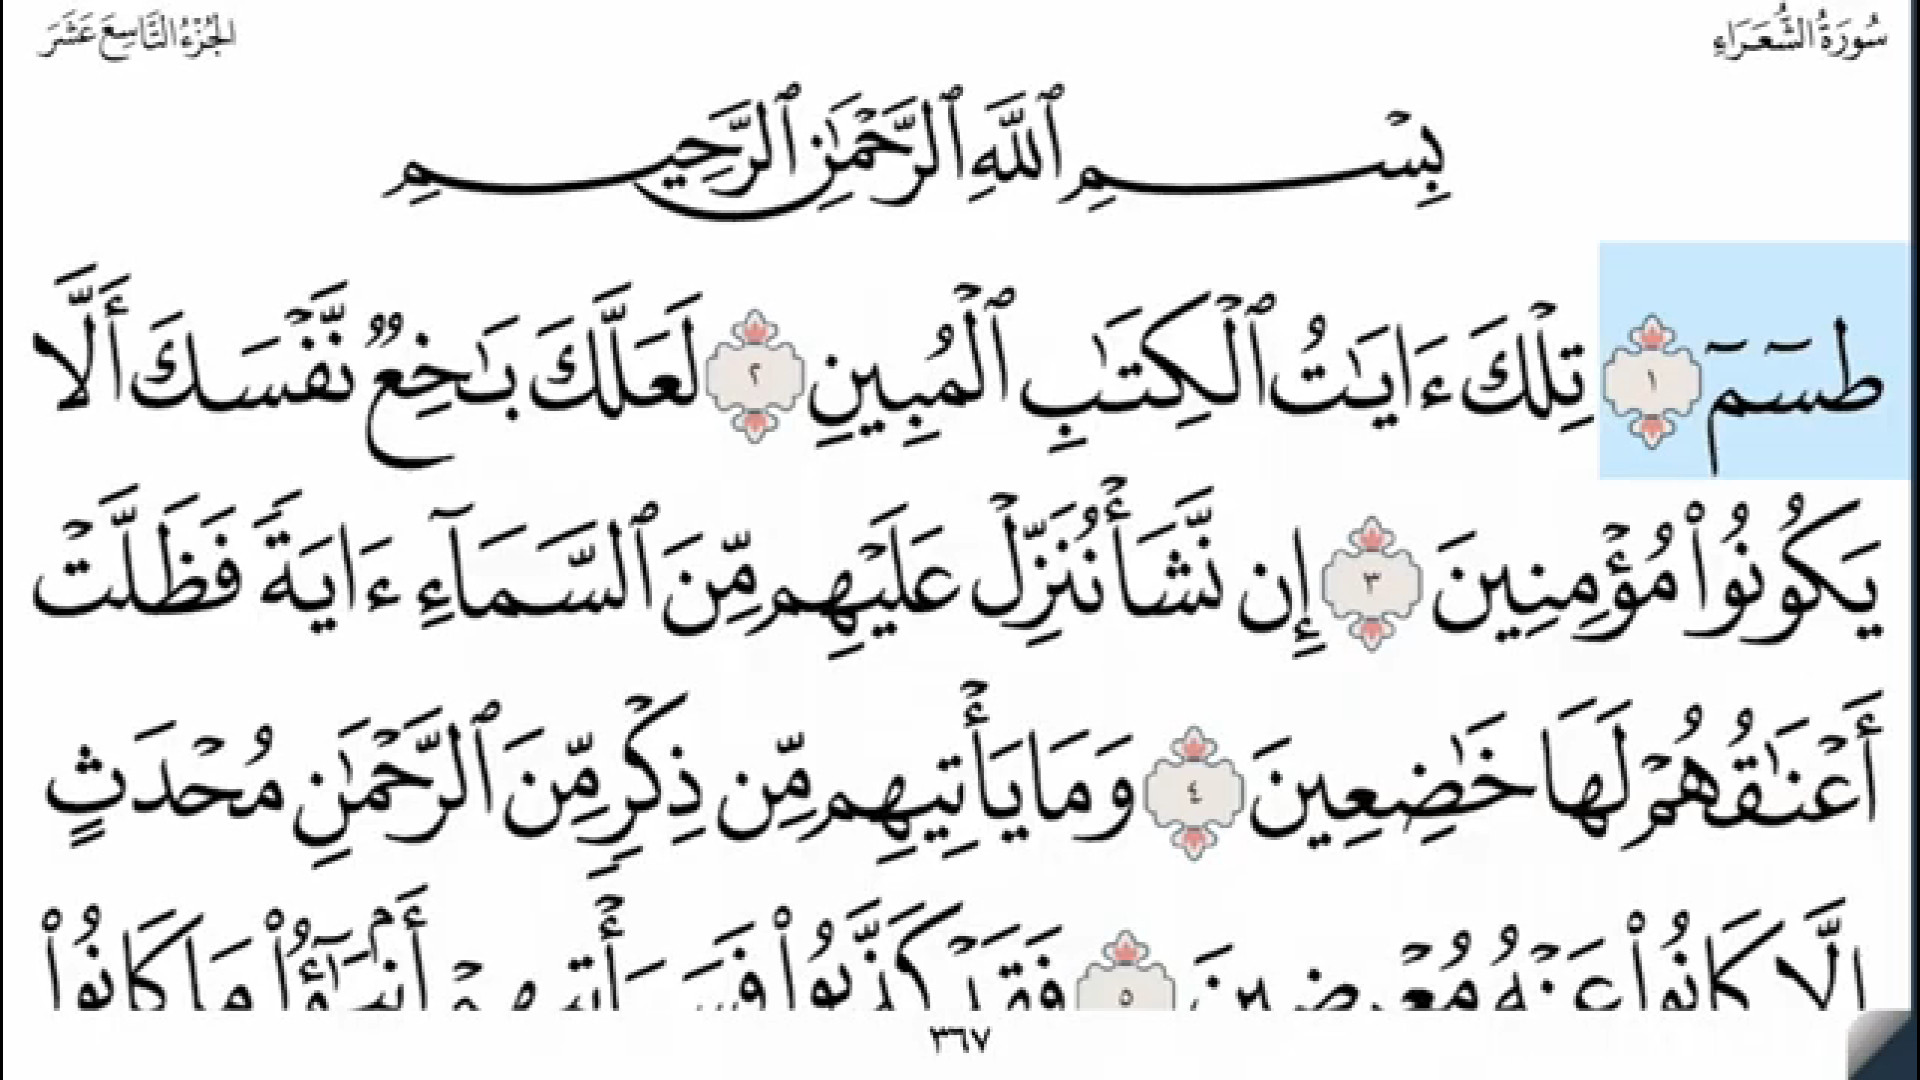 سُورَةُ الشُّعَرَاءِ
الجُزْءُ التَّاسِعَ عَشَرَ
بِسْمِ ٱللَّهِ ٱلرَّحْمَٰنِ ٱلرَّحِيمِ
طسٓمٓ ١ تِلْكَ ءَايَٰتُ ٱلْكِتَٰبِ ٱلْمُبِينِ ٢ لَعَلَّكَ بَٰخِعٌ نَّفْسَكَ أَلَّا
يَكُونُوا۟ مُؤْمِنِينَ ٣ إِن نَّشَأْ نُنَزِّلْ عَلَيْهِم مِّنَ ٱلسَّمَآءِ ءَايَةً فَظَلَّتْ
أَعْنَٰقُهُمْ لَهَا خَٰضِعِينَ ٤ وَمَا يَأْتِيهِم مِّن ذِكْرٍ مِّنَ ٱلرَّحْمَٰنِ مُحْدَثٍ
إِلَّا كَانُوا۟ عَنْهُ مُعْرِضِينَ ٥ فَقَدْ كَذَّبُوا۟ فَسَيَأْتِيهِمْ أَنۢبَٰٓؤُا۟ مَا كَانُوا۟
٣٦٧